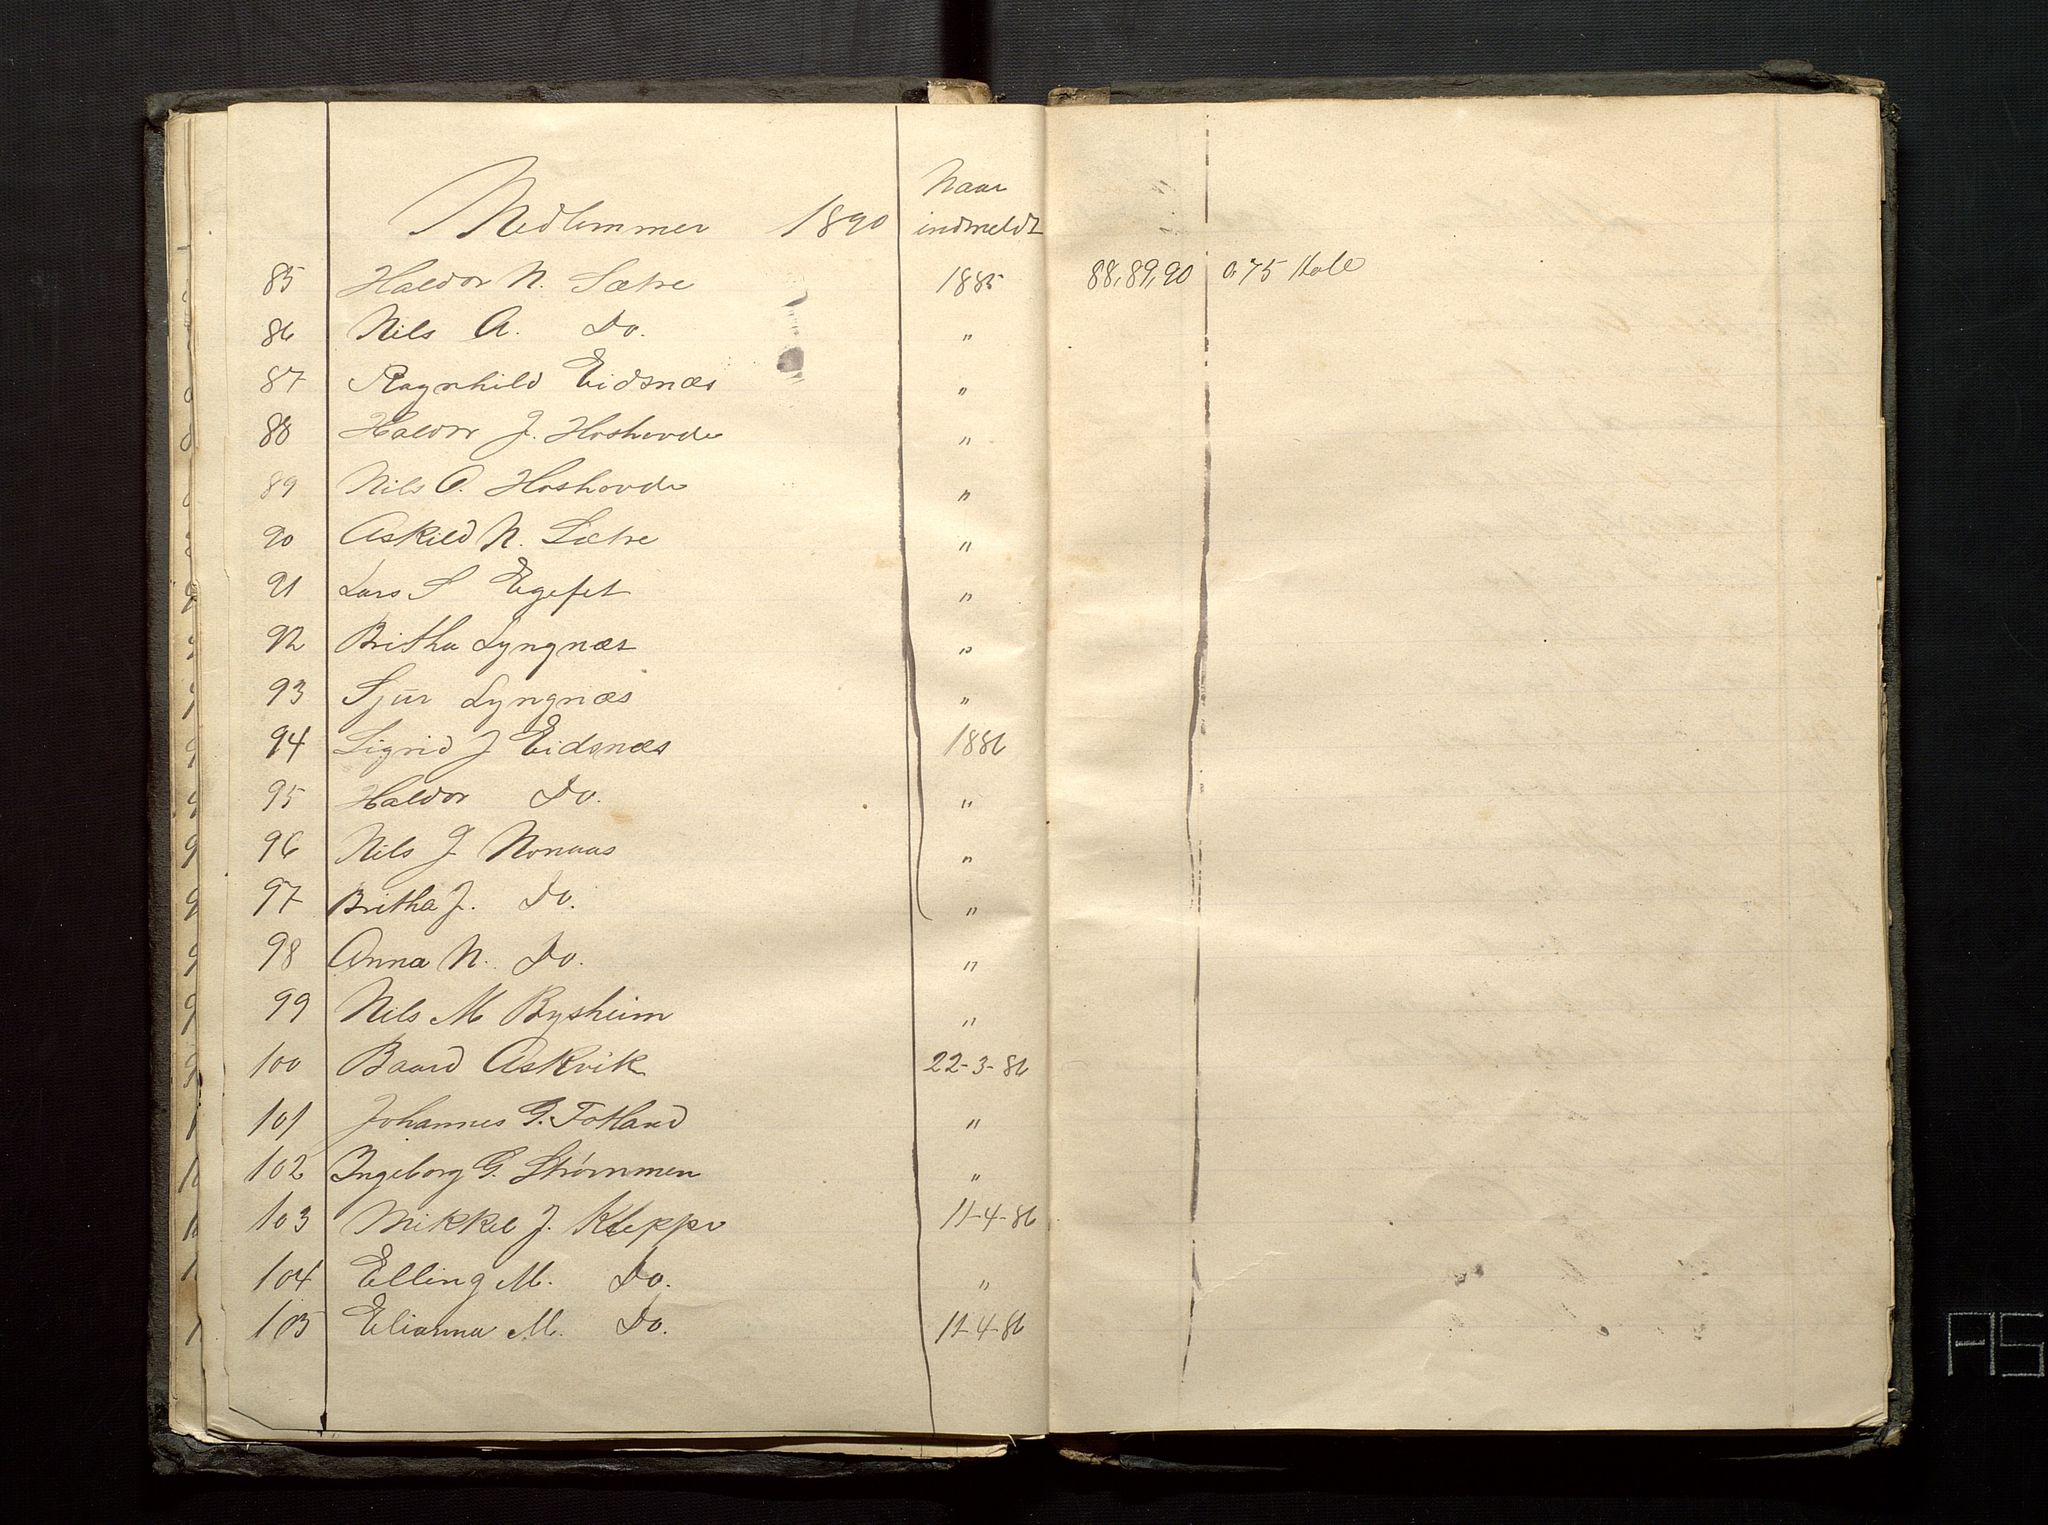 Medlemmer 1890 Naar indmeldt
85 Haldor N. Sætre 1885 88,89,90 0,75 
86 Nils A. Do. "
87 Ragnhild Eidsnæs "
88 Haldor J. Hoshovde "
89 Nils O. Hoshovde "
90 Askild N. Sætre "
91 Lars S Egefet "
92 Britha Lyngnæs "
93 Sjur Lyngnæs "
94 Sigrid J Eidsnæs 1886
95 Haldor Do. "
96 Nils J. Nonaas "
97 Britha J. Do. "
98 Anna N. Do. "
99 Nils M Bysheim "
100 Baard Askvik 22-3-86
101 Johannes G. Fotland "
102 Ingeborg G. Strømmen "
103 Mikkel J. Kleppe 11-4-86
104 Elling M. Do. "
105 Elianna M. Do. 11-4-86